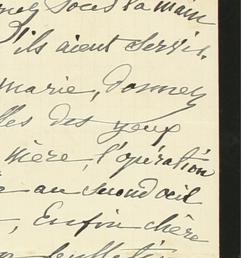 sous la main
qu'ils aient servis.
marie, donnez
des yeux
mère, l'opération
au second œil
, Enfin chère
bulletin